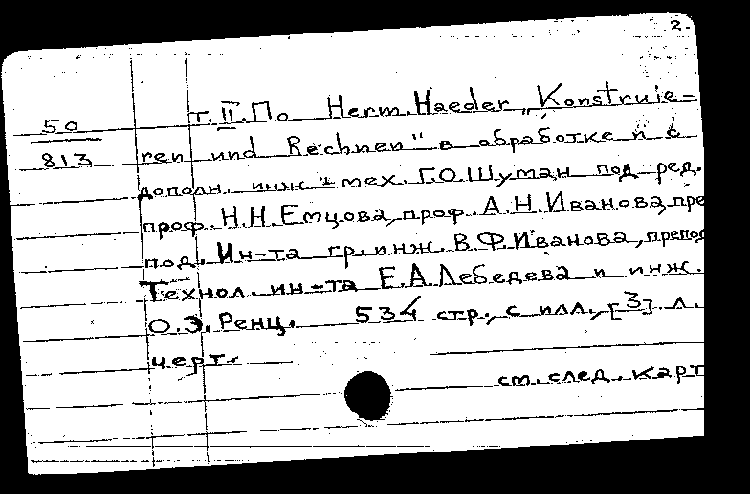 2.
т. II. По Herm. Haeder „Konstruie-
50
813
ren und Rechnen" в обработке и с
дополн. инж.-мех. Г.О.Шуман под ред.
проф. Н.Н.Емцова, проф. А.Н.Иванова, пре
под. Ин-та гр. инж. В.Ф.Иванова, препод
Технол. ин-та Е.А.Лебедева и инж.
О.Э.Ренц. 534 стр., с илл., [3] л.
черт.
см. след. карт